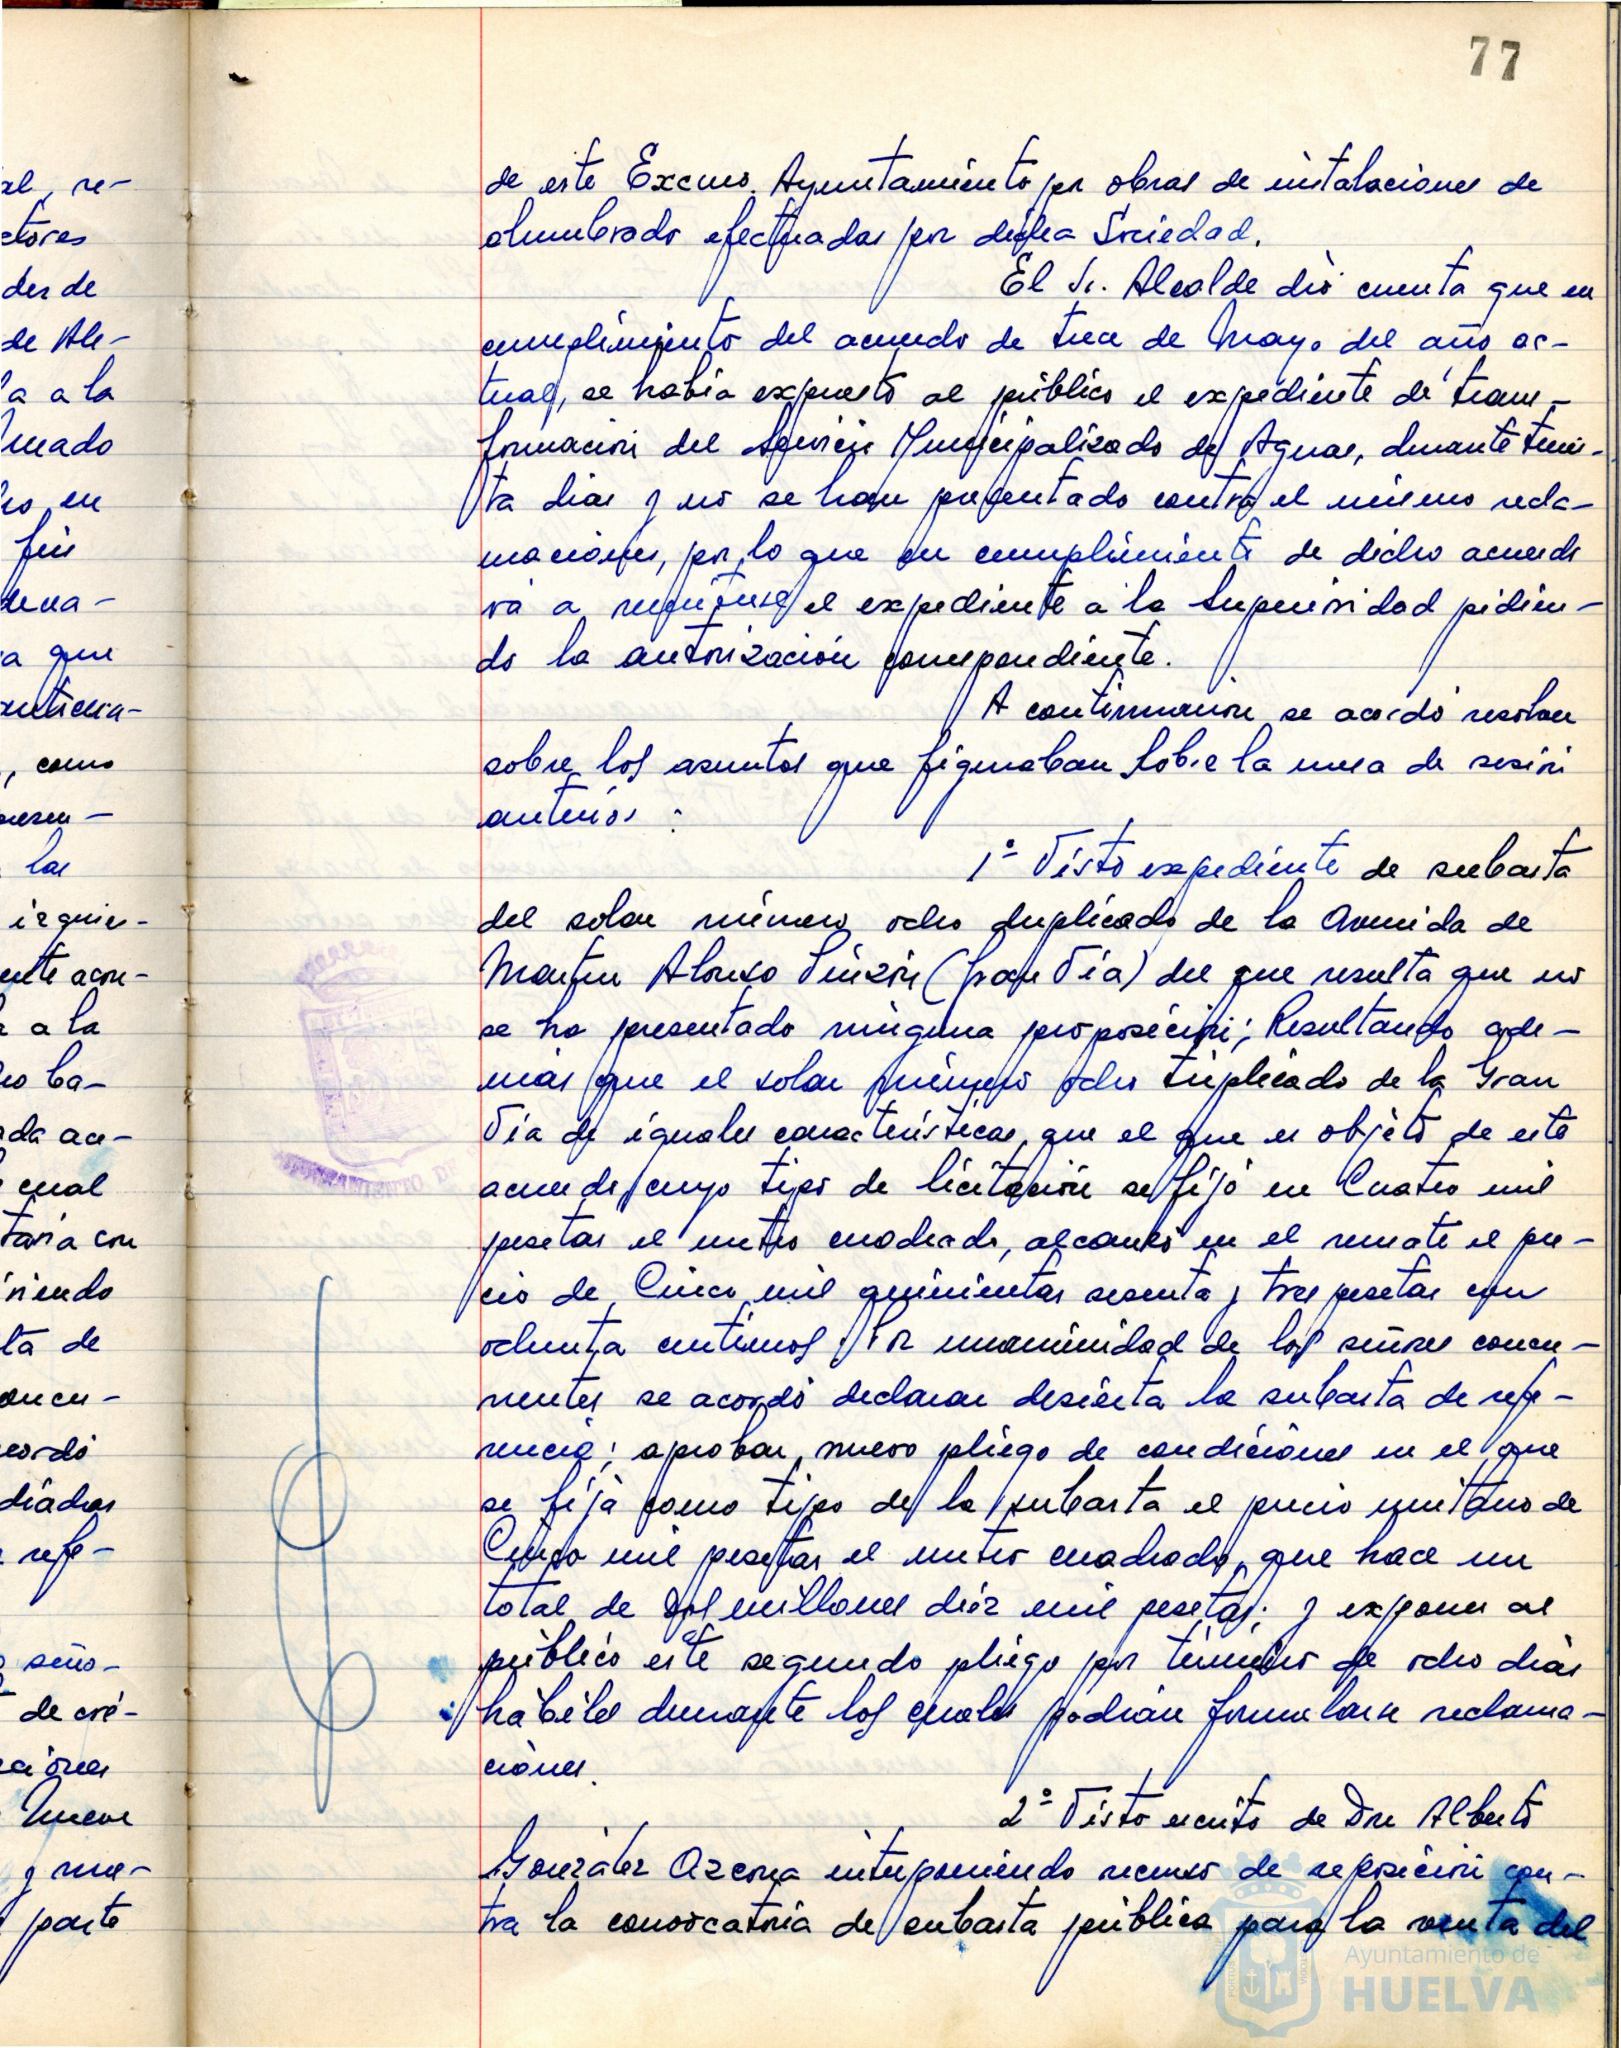 77
de este Excmo. Ayuntamiento por obras de instalaciones de
alumbrado efectuadas por dicha Sociedad.
El Sr. Alcalde dió cuenta que en
cumplimiento del acuerdo de trece de Mayo del año ac-
tual, se había expuesto al público el expediente de trans-
formación del Servicio Municipalizado de Aguas, durante trein-
ta dias y no se han presentado contra el mismo recla-
maciones, por lo que en cumplimiento de dicho acuerdo
vá a remitirse el expediente a la Superioridad pidien-
do la autorización correspondiente.
A continuación se acordó resolver
sobre los asuntos que figuraban sobre la mesa de sesión
anterior :
1º Visto expediente de subasta
del solar número ocho duplicado de la Avenida de
Martin Alonso Pinzón (Gran Via) del que resulta que no
se ha presentado ninguna proposición; Resultando ade-
más que el solar número ocho triplicado de la Gran
Via de iguales características, que el que es objeto de este
acuerdo, cuyo tipo de licitación se fijó en Cuatro mil
pesetas el metro cuadrado, alcanzó en el remate el pre-
cio de Cinco mil quinientas sesenta y tres pesetas con
ochenta centimos. Por unanimidad de los señores concu-
rrentes se acordó declarar desierta la subasta de refe-
rencia; aprobar nuevo pliego de condiciones en el que
se fija como tipo de la subasta el precio unitario de
Cinco mil pesetas el metro cuadrado, que hace un
total de Dos millones diéz mil pesetas; y exponer al
público este segundo pliego por término de ocho dias
hábiles durante los cuales podrán formularse reclama-
ciones.
2º Visto escrito de Don Alberto
González Azcona interponiendo recurso de reposición con-
tra la convocatoria de subasta pública para la venta del
al, re-
ctores
der de
de Ale-
la a la
mado
en
fin
dena-
a que
, como
resen-
las
izquier-
ente acor-
a la
ba-
ada ac-
cual
taria con
iniendo
lta de
oncu-
cordó
diadas
refe-
seño-
de cré-
ciones
Nueve
y me-
parte
AYUNTAMIENTO DE
Ayuntamiento de
HUELVA